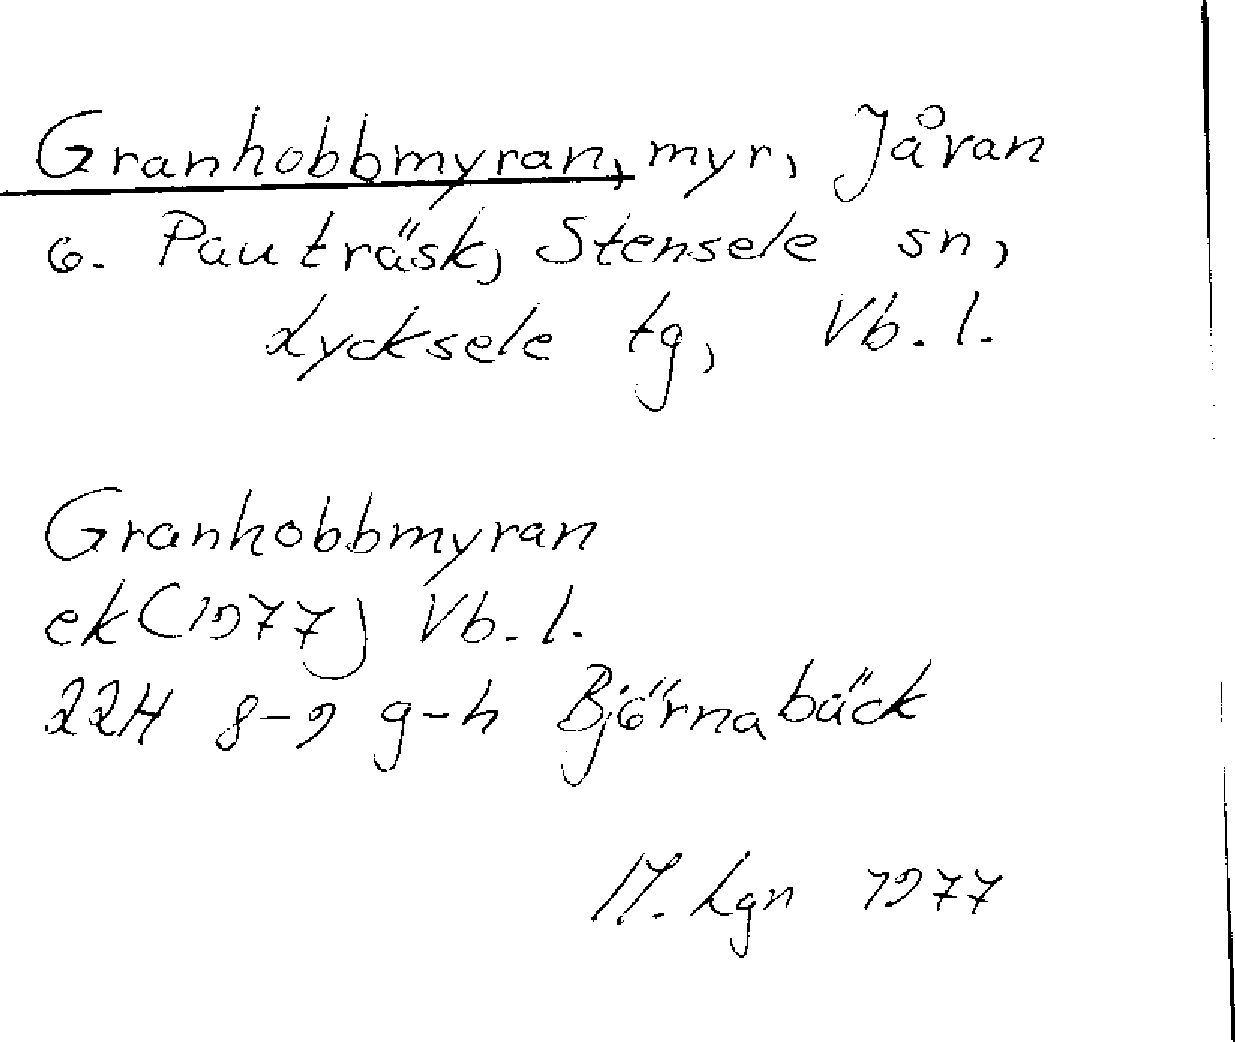 Granhobbmyran, myr, Jåvan
o. Pauträsk, Stensele sn,
Lycksele tg, Vb. l.
Granhobbmyran
ek (1977) Vb. l.
22H 8-9 g-h Björnabäck
M. Lgn 1977